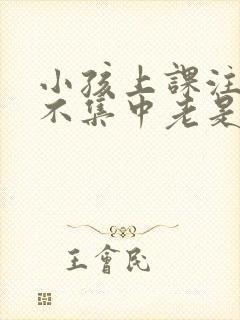 小孩上課注
不集中老是
王會民